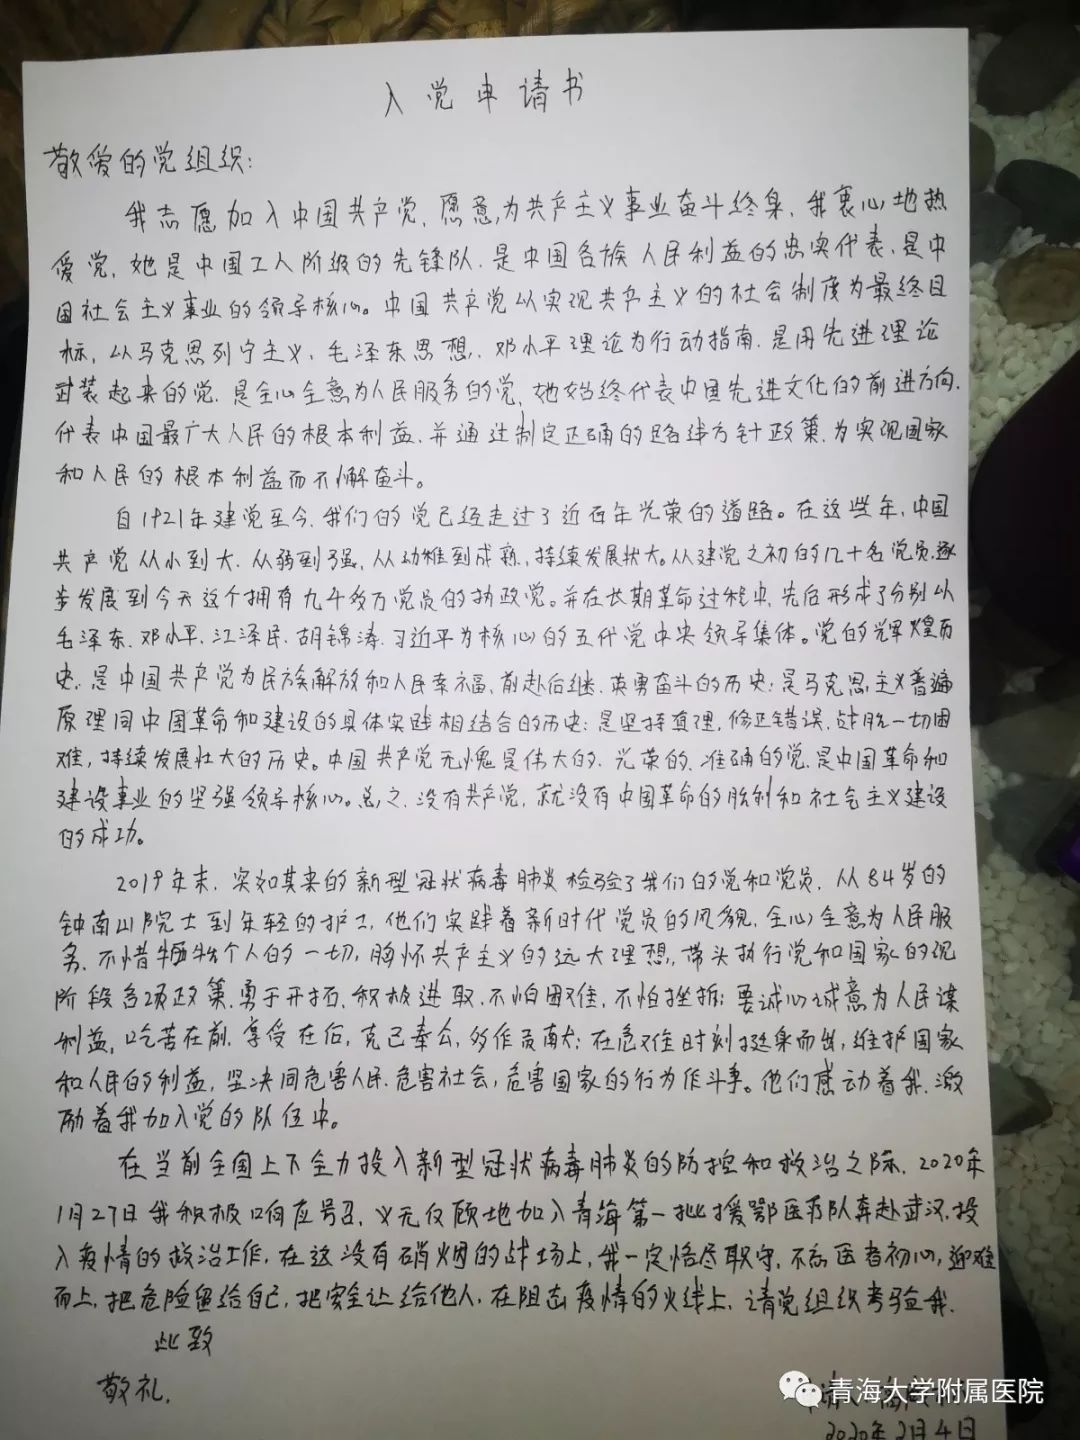 入党申请书
敬爱的党组织:
我志愿加入中国共产党,愿意为共产主义事业奋斗终身,我衷心地热
爱党,她是中国工人阶级的先锋队,是中国各族人民利益的忠实代表,是中
国社会主义事业的领导核心。中国共产党以实现共产主义的社会制度为最终目
标,以马克思列宁主义、毛泽东思想、邓小平理论为行动指南,是用先进理论
武装起来的党,是全心全意为人民服务的党,她始终代表中国先进文化的前进方向,
代表中国最广大人民的根本利益,并通过制定正确的路线方针政策,为实现国家
和人民的根本利益而不懈奋斗。
自1921年建党至今,我们的党已经走过了近百年光荣的道路。在这些年,中国
共产党从小到大,从弱到强,从幼稚到成熟,持续发展壮大。从建党之初的几十名党员,逐
步发展到今天这个拥有九千多万党员的执政党。并在长期革命过程中,先后形成了分别以
毛泽东、邓小平、江泽民、胡锦涛、习近平为核心的五代党中央领导集体。党的辉煌历
史,是中国共产党为民族解放和人民幸福,前赴后继,英勇奋斗的历史;是马克思主义普遍
原理同中国革命和建设的具体实践相结合的历史;是坚持真理,修正错误,战胜一切困
难,持续发展壮大的历史。中国共产党无愧是伟大的、光荣的、准确的党,是中国革命和
建设事业的坚强领导核心。总之,没有共产党,就没有中国革命的胜利和社会主义建设
的成功。
2019年末,突如其来的新型冠状病毒肺炎检验了我们的党和党员,从84岁的
钟南山院士到年轻的护士,他们实践着新时代党员的风貌,全心全意为人民服
务,不惜牺牲个人的一切,胸怀共产主义的远大理想,带头执行党和国家的现
阶段各项政策,勇于开拓,积极进取,不怕困难,不怕挫折;要诚心诚意为人民谋
利益,吃苦在前,享受在后,克己奉公,多作贡献;在危难时刻挺身而出,维护国家
和人民的利益,坚决同危害人民,危害社会,危害国家的行为作斗争。他们感动着我,激
励着我加入党的队伍中。
在当前全国上下全力投入新型冠状病毒肺炎的防控和救治之际,2020年
1月27日我积极响应号召,义无反顾地加入青海第一批援鄂医疗队奔赴武汉,投
入疫情的救治工作,在这没有硝烟的战场上,我一定恪尽职守,不忘医者初心,迎难
而上,把危险留给自己,把安全让给他人,在阻击疫情的火线上,请党组织考验我。
此致
敬礼。
2020年2月4日
青海大学附属医院